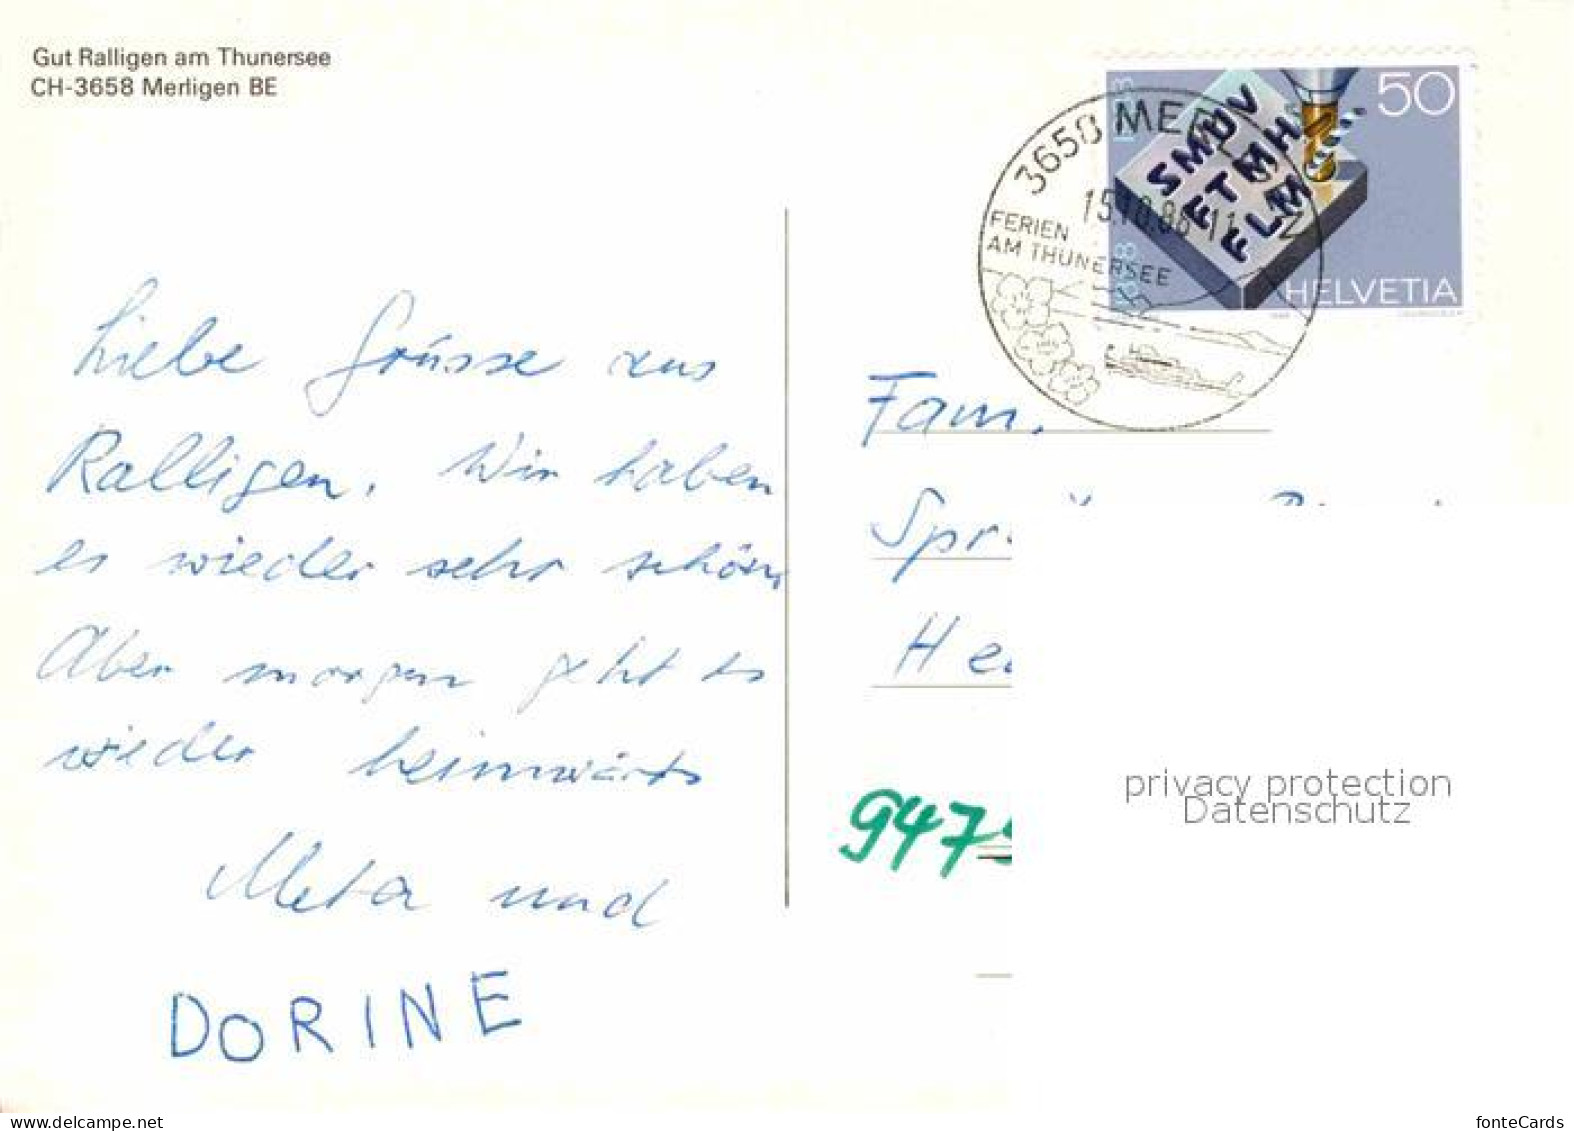 Gut Ralligen am Thunersee
CH-3658 Merligen BE
50
SMUV
FTMH
FLM
1883
HELVETIA
3658 MERLIGEN
15.10.88-11
FERIEN
AM THUNERSEE
Liebe Grüsse aus
Ralligen. Wir haben
es wieder sehr schön
Aber morgen geht es
wieder heimwärts
Meta und
DORINE
Fam.
947
privacy protection
Datenschutz
www.delcampe.net
fonteCards